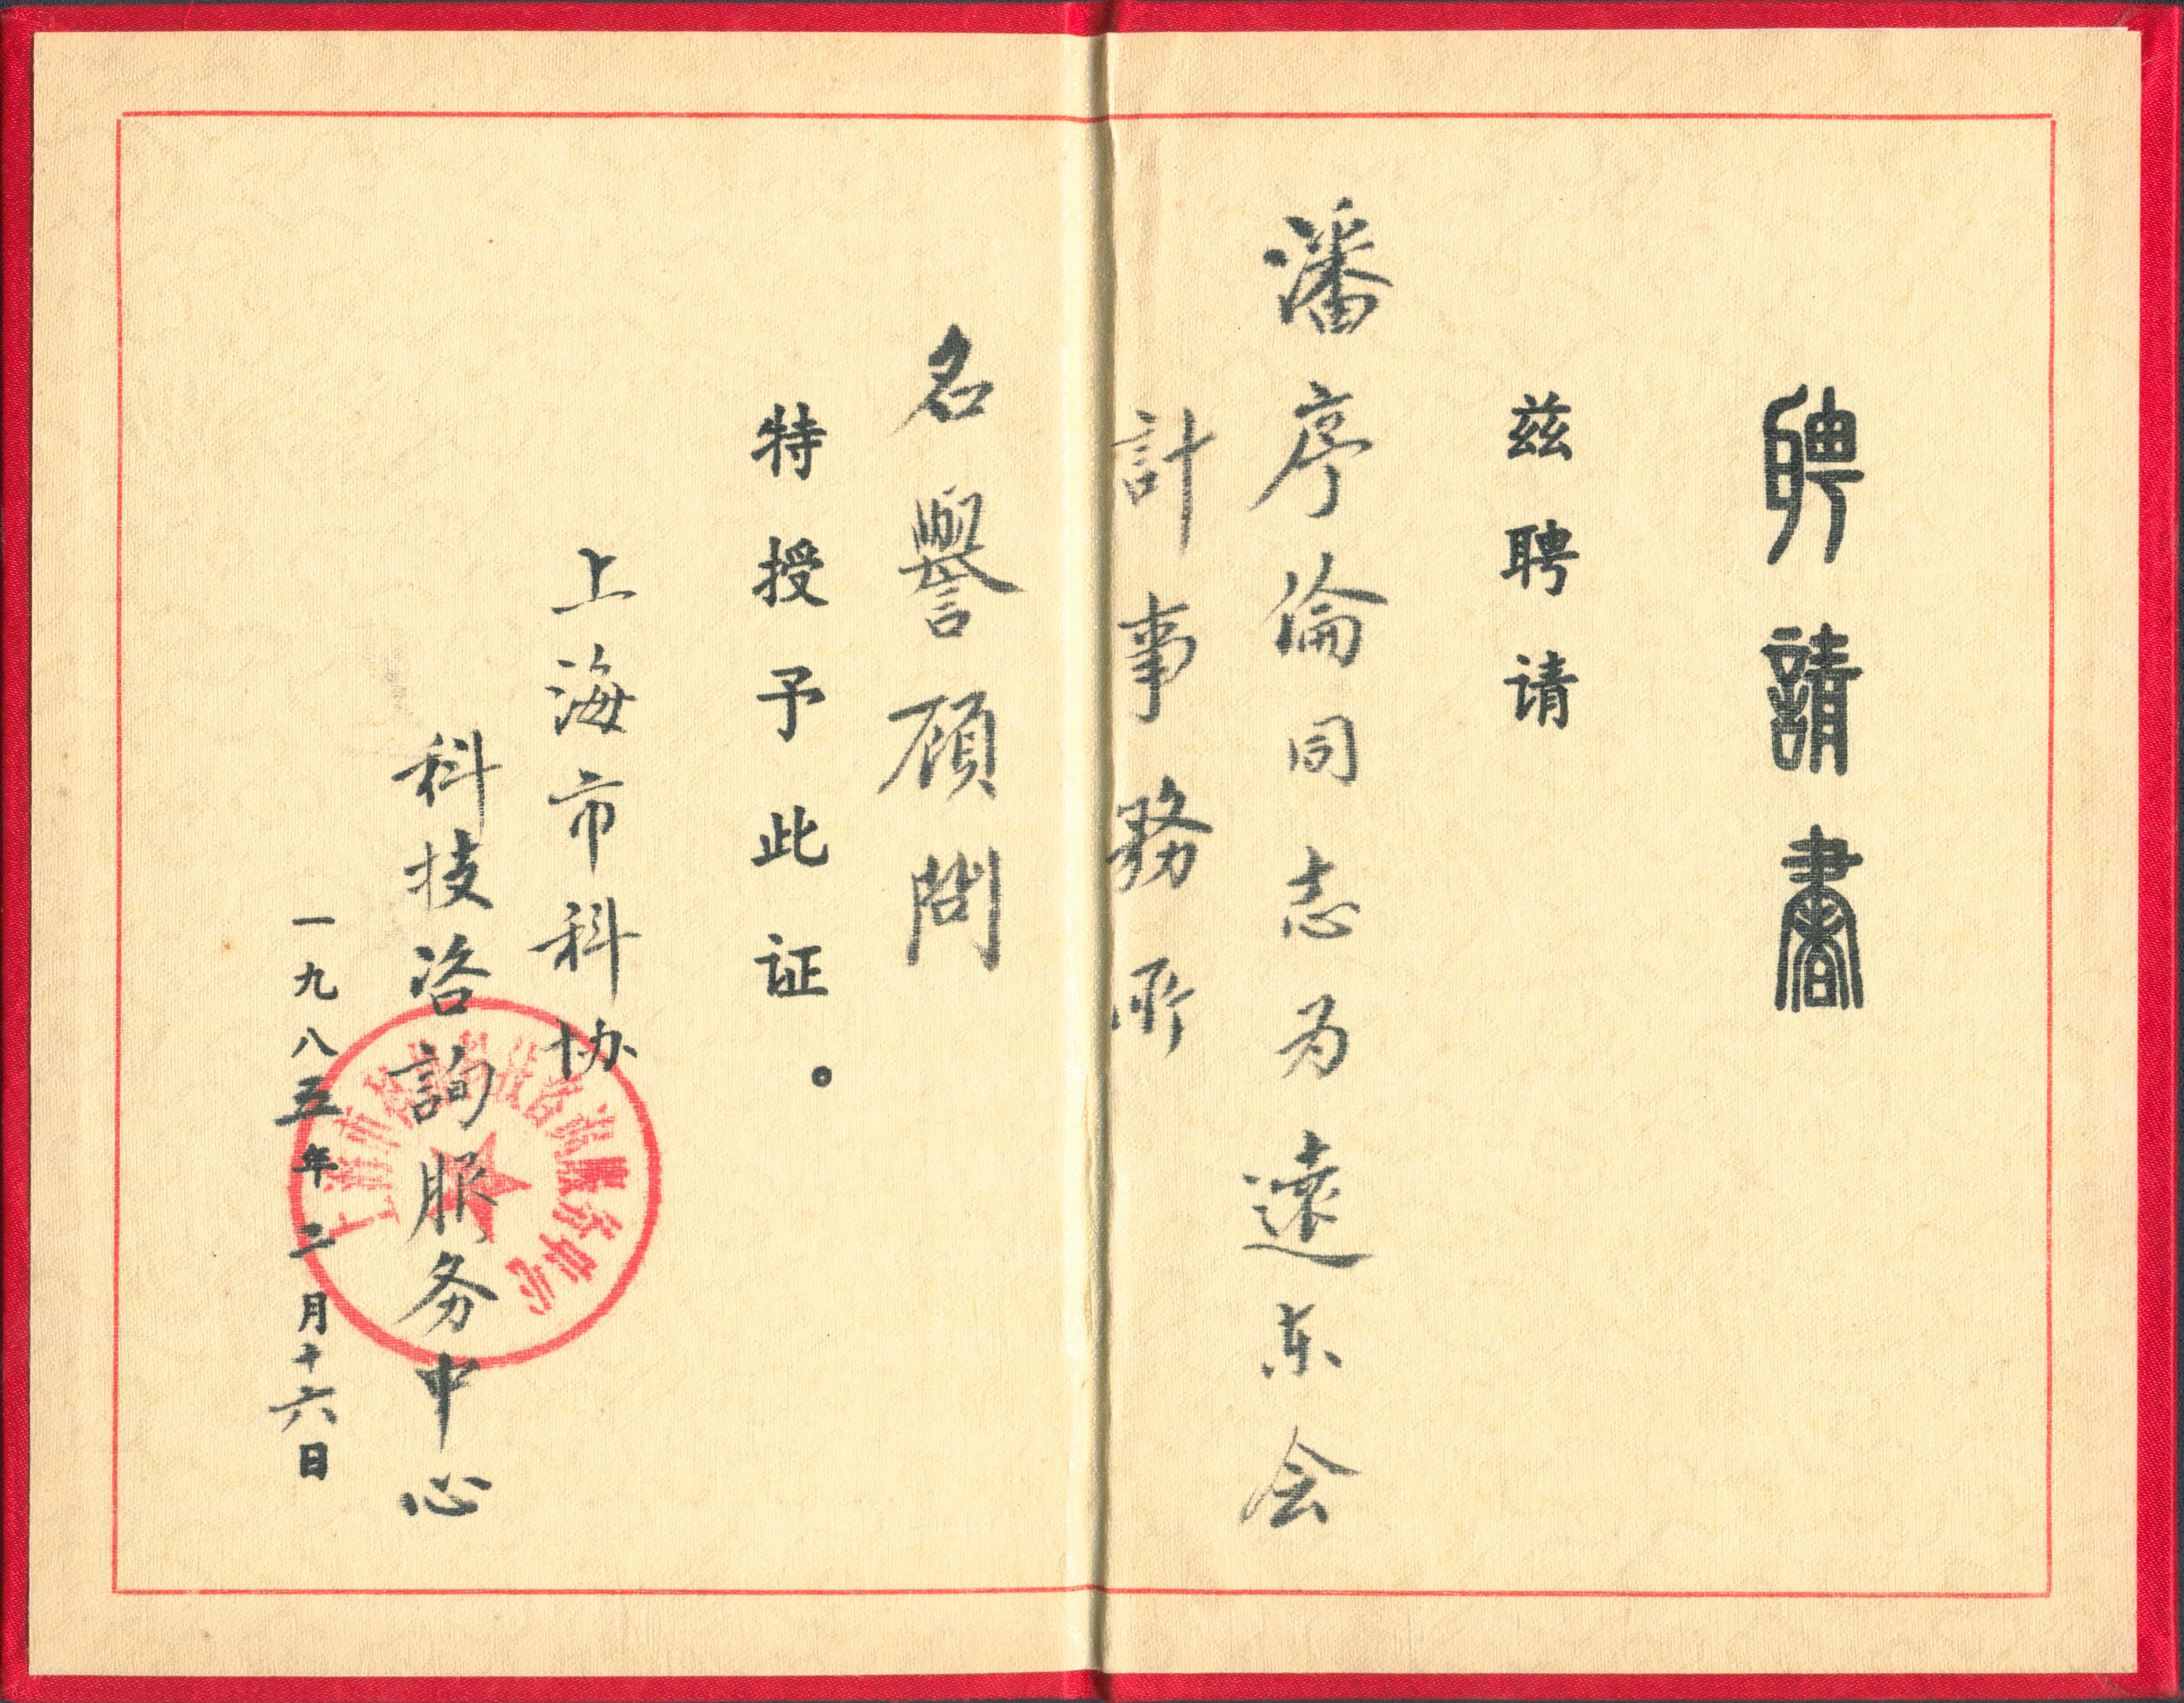 聘請書
兹聘请
潘序倫同志为遠东会
計事務所
名譽顾問
特授予此证.
上海市科协
科技咨詢服务中心
一九八五年二月十六日
上海市科协科技咨询服务中心